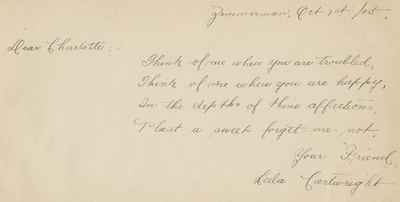 Zimmerman, Oct 1st /05.
Dear Charlotte:-
Think of me when you are troubled,
Think of me when you are happy,
In the depths of thine affections,
Plant a sweet forget me not.
Your Friend,
Leila Cartwright